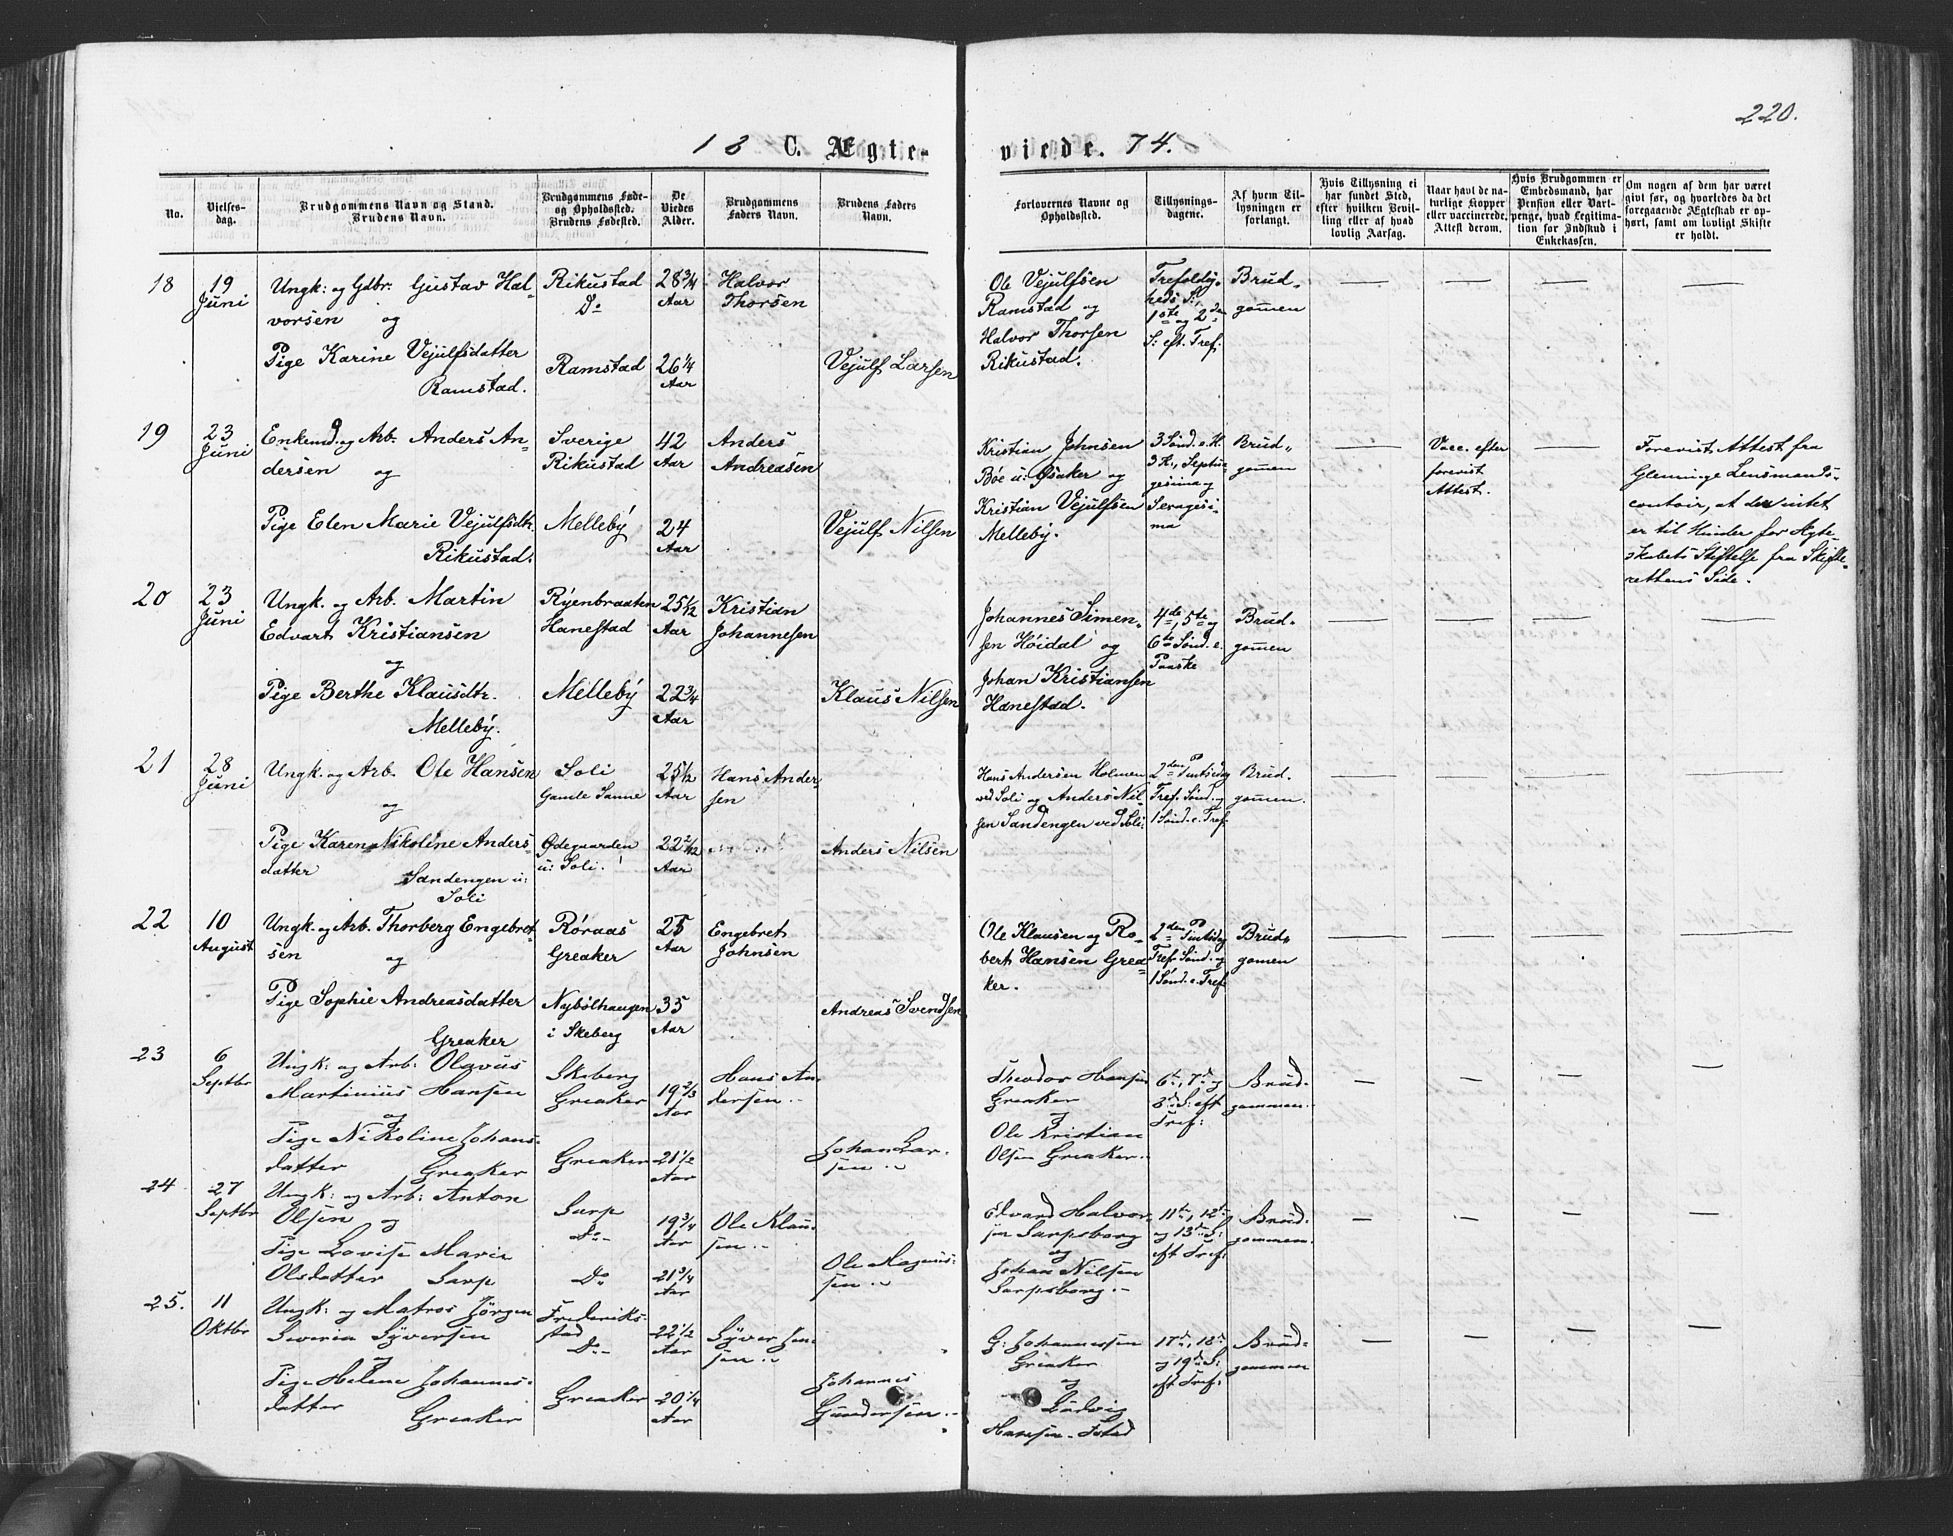 220.
18 C. Ægte-
viede. 74.
No.
Vielses-
dag.
Brudgommens Navn og Stand.
Brudens Navn.
Brudgommens Føde-
og Opholdssted.
Brudens Fødested.
De
Viedes
Alder.
Brudgommens
Faders Navn.
Brudens Faders
Navn.
Forlovernes Navne og
Opholdssted.
Tillysnings-
dagene.
Af hvem Til-
lysningen er
forlangt.
Hvis Tillysning ei
har fundet Sted,
efter hvilken Bevil-
ling eller af hvad
lovlig Aarsag.
Naar havt de na-
turlige Kopper
eller vaccinerede.
Attest derom.
Hvis Brudgommen er
Embedsmand, har
Pension eller Vart-
penge, hvad Legitima-
tion for Indskud i
Enkekassen.
Om nogen af dem har været
givt før, og hvorledes da det
foregaaende Ægteskab er op-
hørt, samt om lovligt Skifte
er holdt.
18
19
Juni
Ungk: og Gdbr. Gustav Hal-
vorsen og
Pige Karine Vejulfsdatter
Ramstad.
Rikustad
Do
Ramstad
28 3/4
Aar
26 1/4
Aar
Halvor
Thorsen
Vejulf Larsen
Ole Vejulfsen
Ramstad og
Halvor Thorsen
Rikustad.
Trefoldig-
heds S:,
1ste og 2den
S: eft. Tref:
Brud-
gommen
— — — —
19
23
Juni
Enkemd. og Arb. Anders An-
dersen og
Pige Elen Marie Vejulfsdtr.
Rikustad.
Sverige
Rikustad
Melleby
42
Aar
24
Aar
Anders
Andreasen
Vejulf Nilsen
Kristian Johnsen
Böe u: Øsaker og
Kristian Vejulfsen
Melleby.
3 Sönd. e. H.
3 K., Septua-
gesima og
Sexagesi-
ma
Brud-
gommen
—
Vacc. efter
forevist
Attest.
—
Forevist Attest fra
Glemminge Lensmands-
contoir, at der intet
er til Hinder for Ægte-
skabets Stiftelse fra Skifte-
rettens Side.
20
23
Juni
Ungk. og Arb. Martin
Edvart Kristiansen
og
Pige Berthe Klausdtr.
Melleby.
Ryenbraaten
Hanestad
Melleby
25 1/2
Aar
22 3/4
Aar
Kristian
Johannesen
Klaus Nilsen
Johannes Simen-
sen Höidal og
Johan Kristiansen
Hanestad.
4de, 5te og
6te Sönd. e.
Paaske
Brud-
gommen
— — — —
21
28
Juni
Ungk. og Arb. Ole Hansen
og
Pige Karen Nikoline Anders-
datter Sandengen u:
Soli
Soli
Gamle Sanne
Ødegaarden
u: Soli.
25 1/2
Aar
22 2/12
Aar
Hans Ander-
sen
Anders Nilsen
Hans Andersen Holmen
ved Soli og Anders Nil-
sen Sandengen ved Soli:
2den Pintsedag
Tref. Sönd. og
1 Sönd. e. Tref.
Brud-
gommen.
— — — —
22
10
August
Ungk. og Arb. Thorberg Engebret-
sen og
Pige Sophie Andreasdatter
Greaker
Røraas
Greaker
Nybölhaugen
i Skeberg
25
Aar
35
Aar
Engebret
Johnsen
Andreas Svendsen
Ole Klausen og Ro-
bert Hansen Grea-
ker.
2den Pintsdag
Tref. Sönd. og
1 Sönd. e. Tref.
Brud-
gommen
— — — —
23
6
Septbr
Ungk: og Arb: Olavus
Martinius Hansen
og
Pige Nikoline Johans-
datter Greaker
Skeberg
Greaker
Greaker
19 2/3
Aar
21 1/2
Aar
Hans An-
dersen
Johan Lar-
sen
Theodor Hansen
Greaker
og
Ole Kristian
Olsen Greaker
6te, 7de og
8de S: eft
Tref:
Brud-
gommen
— — — —
24
27
Septbr
Ungk: og Arb: Anton
Olsen og
Pige Lovise Marie
Olsdatter Sarp
Sarp
Do
Do
19 3/4
Aar
21 3/4
Aar
Ole Klau-
sen
Ole Magnus-
sen
Edvard Halvor-
sen Sarpsborg
og
Johan Nilsen
Sarpsborg.
11te, 12te
og 13de S:
eft Tref:
Brud-
gommen
— — — —
25.
11
Oktbr
Ungk: og Matros Jörgen
Severin Syversen
og
Pige Helene Johannes-
datter Greaker
Frederiks-
stad
Do
Greaker
22 1/2
Aar
20 1/4
Aar
Syver Jen-
sen
Johannes
Gundersen
G: Johannessen
Greaker
og
Ludvig
Hansen
17de, 18de
og 19de S:
eft Tref:
Brud-
gommen
— — — —